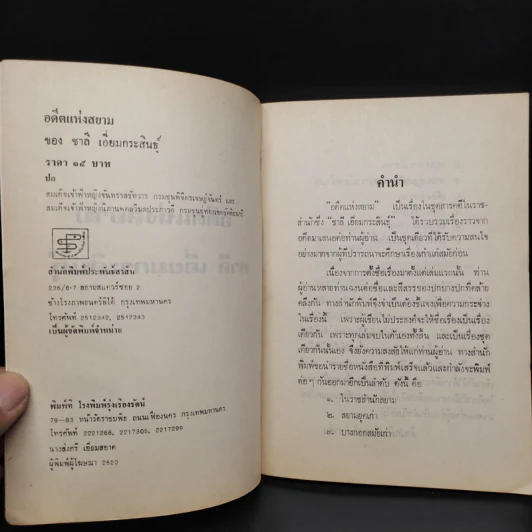 อดีตแห่งสยาม
ของ ชาลี เอี่ยมกระสินธุ์
ราคา ๑๕ บาท
ปก
สมเด็จเจ้าฟ้าหญิงจันทราสรัทวาร กรมขุนพิจิตรเจษฎ์จันทร์ และ
สมเด็จเจ้าฟ้าหญิงนิภานพดลวิมลประภาวดี กรมขุนอู่ทองเขตรขัติยนารี
สำนักพิมพ์ประพันธ์สาส์น
226/6-7 สยามสแควร์ซอย 2
ข้างโรงภาพยนตร์ลิโด้ กรุงเทพมหานคร
โทรศัพท์ 2512342, 2512343
เป็นผู้จัดพิมพ์จำหน่าย
พิมพ์ที่ โรงพิมพ์รุ่งเรืองรัตน์
79-83 หน้าวัดราชบพิธ ถนนเฟื่องนคร กรุงเทพมหานคร
โทรศัพท์ 2221268, 2217305, 2217299
นางส่งศรี เอี่ยมสอาด
ผู้พิมพ์ผู้โฆษณา 2520
คำนำ
“อดีตแห่งสยาม” เป็นเรื่องในชุดสารคดีในราช-
สำนักซึ่ง “ชาลี เอี่ยมกระสินธุ์” ได้รวบรวมเรื่องราวจาก
อดีตมาเสนอต่อท่านผู้อ่าน เป็นชุดเดียวที่ได้รับความสนใจ
อย่างมากจากผู้ที่ปรารถนาจะศึกษาเรื่องเก่าแต่สมัยก่อน
เนื่องจากการตั้งชื่อเรื่องมาตั้งแต่เล่มแรกนั้น ท่าน
ผู้อ่านหลายท่านงงงันเพราะชื่อและสีสรรของปกบางปกที่คล้าย
คลึงกัน ทางสำนักพิมพ์จึงจำเป็นต้องชี้แจงเพื่อความกระจ่าง
ในเรื่องนี้ เพราะผู้เขียนไม่ประสงค์จะให้ชื่อเรื่องเป็นเรื่อง
เดียวกัน เพราะทุกเล่มจบในตัวเองทั้งสิ้น และเป็นเรื่องชุด
เดียวกันนั้นเอง จึงยังความสงสัยให้แก่ท่านผู้อ่าน ทางสำนัก
พิมพ์ขอนำรายชื่อหนังสือที่พิมพ์เสร็จแล้วและกำลังจะพิมพ์
ต่อ ๆ กันออกมาอีกเป็นลำดับ ดังนี้ คือ
๑. ในราชสำนักสยาม
๒. สยามยุคเก่า
๓. บางกอกสมัยเก่า